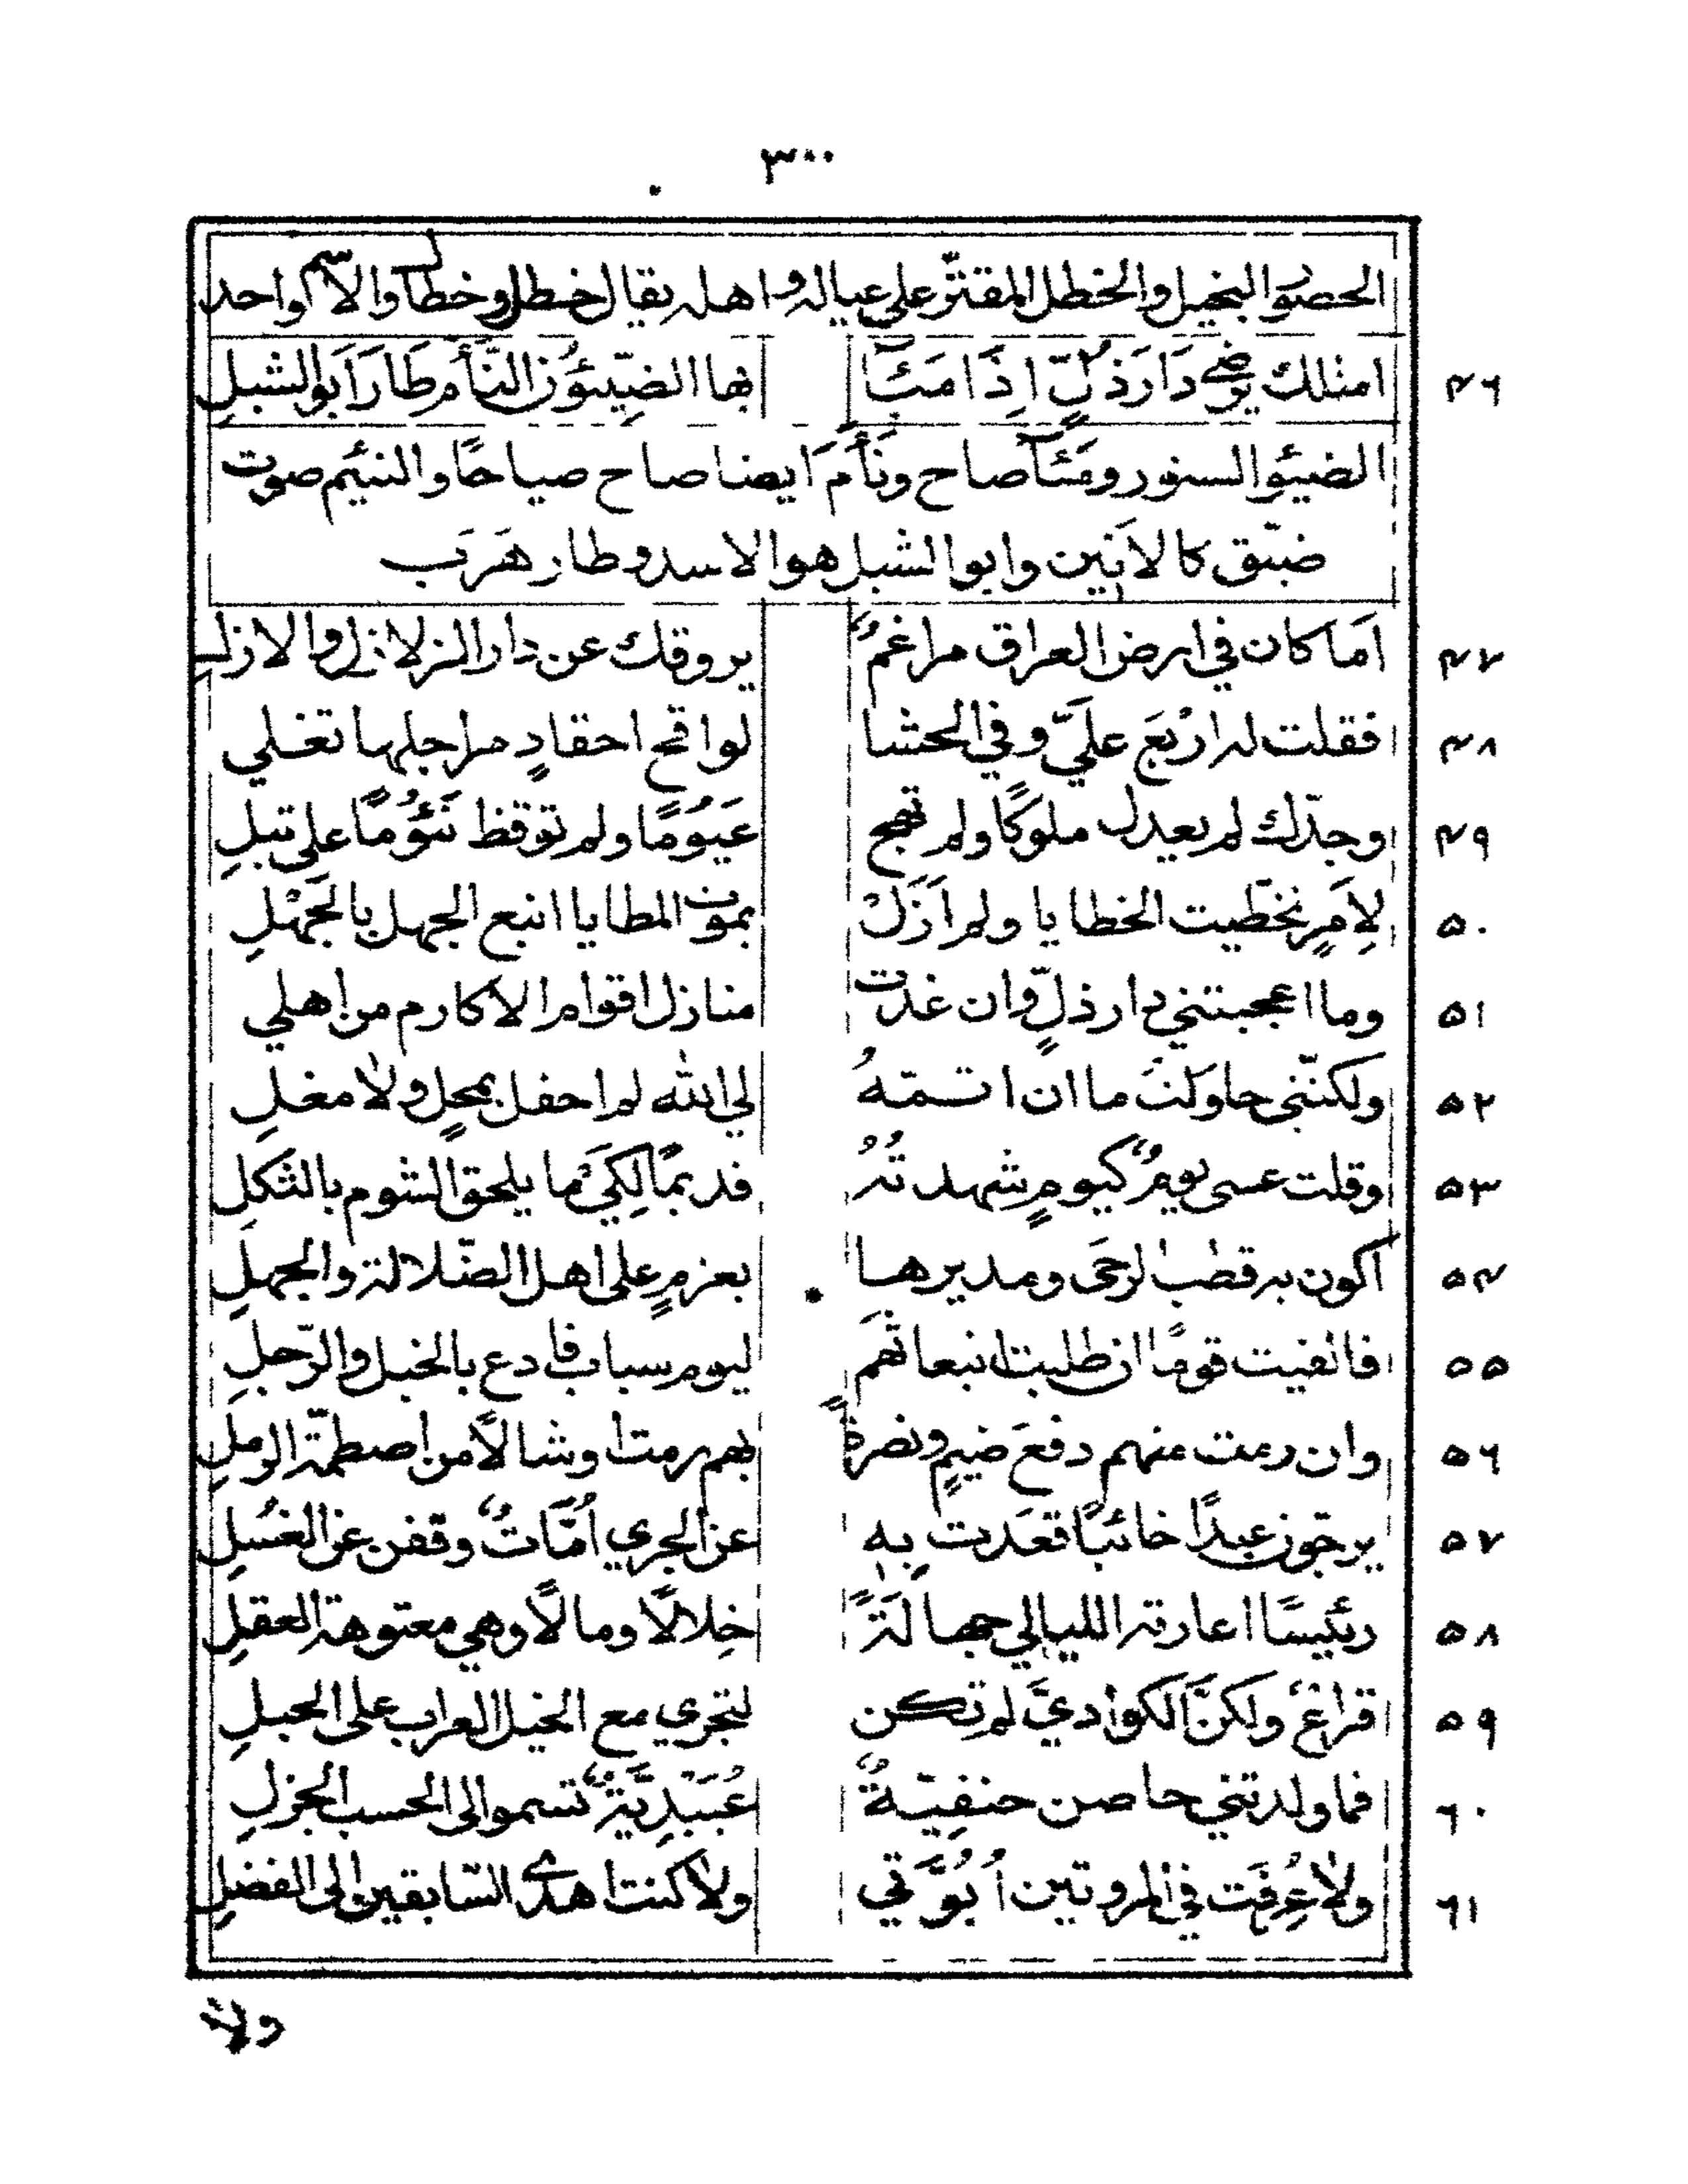 ٣٠٠
الحصؤ البخيل والخطل المقتّر على عياله واهله يقال خطل وخطّال والاسم واحد
٤٦ امثلك يرضى دار ذلٍّ اِذَا مَئَا بها الضيّئوُن النَّأم طَارَ اَبو الشبلِ
الضيئو السنور ومَئَا صاح ونَأَمَ ايضا صاح صياحًا والنئيم صوت
ضيّق كالاَنِين وابو الشبل هو الاسد وطار هَرَب
٤٧ اَما كان في ارض العراق مراغمٌ يروقك عن دار الزلازل والازلِ
٤٨ فقلت له ارْبَع علَيّ وفي الحشا لواقح احقادٍ مراجلها تغلي
٤٩ وجدّك لم يعدل ملوكًا ولم تهج عَيَوُمًا ولم توقظ نَئوُمًا على تبلِ
٥٠ لِاَمرٍ تخطّيت الخطايا ولم اَزَلْ بموت المطايا اتبع الجهل بالجَهْلِ
٥١ وما اعجبتني دار ذلٍّ وان غدت منازل اقوام الاكارم من اهلي
٥٢ ولكنّني حاوَلتُ ما ان اتمّهُ لي الله لم احفل بمحلٍ ولا مغلِ
٥٣ وقلت عسى يومٌ كيومٍ شهدتُهُ قديمًا لِكَيْما يلحق الشوم بالثكلِ
٥٤ اكون به قطب الرحَى ومديرها بعزمٍ على اهل الضّلالة والجهلِ
٥٥ فالفيت قومًا ان طلبت انبعاثهم ليوم سباب فادع بالخيل والرّجلِ
٥٦ وان رمت منهم دفعَ ضيمٍ ونصرةً بهم رمت اوشالًا من اصطمّة الرملِ
٥٧ يرجّون عبدًا خائبًا قعَدت بِهِ عن الجري اُمّاتٌ وقفن عن الغسُلِ
٥٨ رئيسًا اعارته الليالي جهالَةً خِلالًا ومالًا وهي معتوهة العقلِ
٥٩ قراعٌ ولكنّ الكواديَّ لم تكن لتجري مع الخيل العراب على الحبلِ
٦٠ فما ولدتني حاصن حنفِيّةٌ عُبَيْدِيَّةٌ تسمو الى الحسب الجزلِ
٦١ ولا عُرِفَت في المروتين اُبُوَّتي ولا كنت اهدى السّابقين الى الفضلِ
ولا